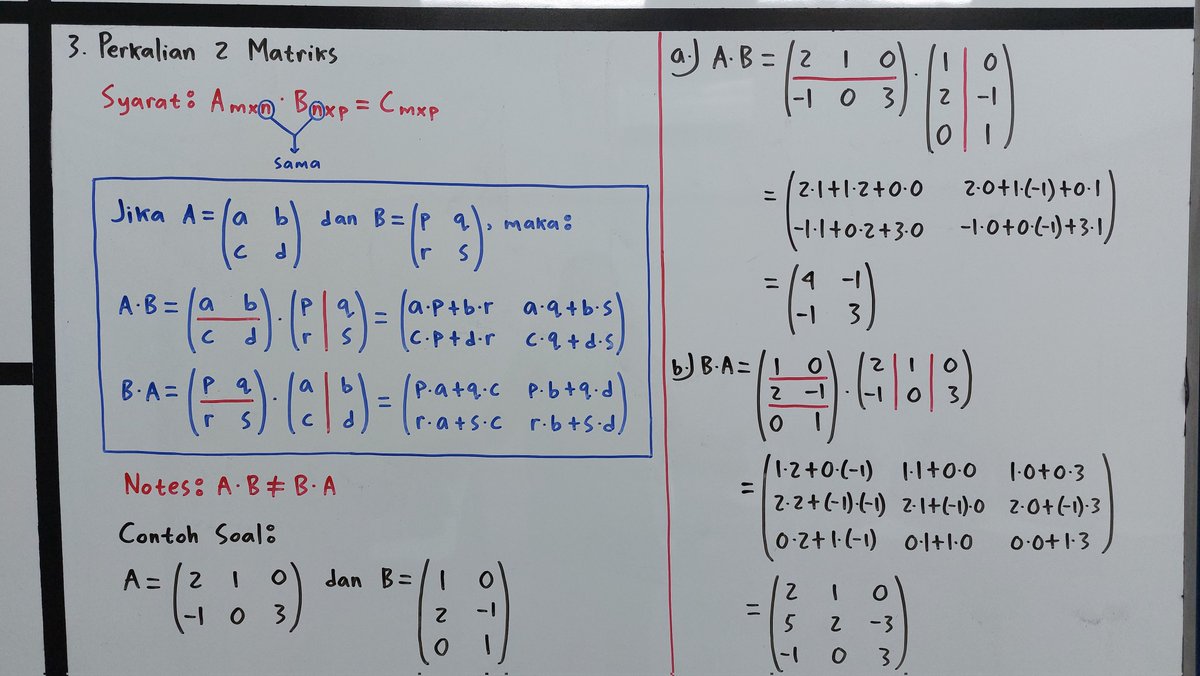 3. Perkalian 2 Matriks
Syarat: A m×n · B n×p = C m×p
sama
Jika A = (a b) dan B = (p q), maka:
(c d) (r s)
A·B = (a b) · (p | q) = (a·p+b·r a·q+b·s)
(c d) (r | s) (c·p+d·r c·q+d·s)
B·A = (p q) · (a | b) = (p·a+q·c p·b+q·d)
(r s) (c | d) (r·a+s·c r·b+s·d)
Notes: A·B ≠ B·A
Contoh Soal:
A = (2 1 0) dan B = (1 0)
(-1 0 3) (2 -1)
(0 1)
a.) A·B = (2 1 0) · (1 | 0)
(-1 0 3) (2 | -1)
(0 | 1)
= (2·1+1·2+0·0 2·0+1·(-1)+0·1)
(-1·1+0·2+3·0 -1·0+0·(-1)+3·1)
= (4 -1)
(-1 3)
b.) B·A = (1 0) · (2 | 1 | 0)
(2 -1) (-1 | 0 | 3)
(0 1)
= (1·2+0·(-1) 1·1+0·0 1·0+0·3)
(2·2+(-1)·(-1) 2·1+(-1)·0 2·0+(-1)·3)
(0·2+1·(-1) 0·1+1·0 0·0+1·3)
= (2 1 0)
(5 2 -3)
(-1 0 3)